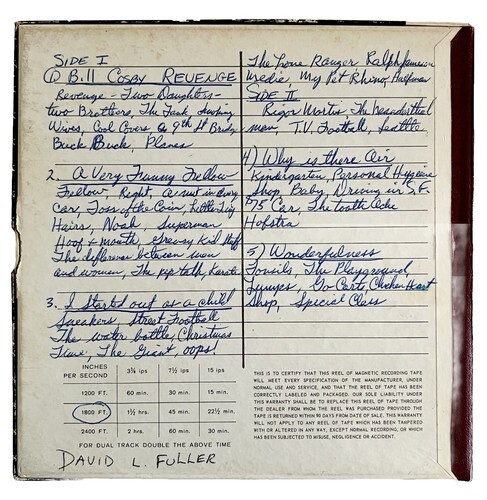 SIDE I
① Bill Cosby REVENGE
Revenge - Two Daughters -
two Brothers, The Tank, Smoking
Wives, Cool Covers, a 9th St Bridge
Buck Buck, Planes
2. A Very Funny Fellow
Fellow, Right, A nut in every
car, Toss of the Coin, Little Tiny
Hairs, Noah, Superman
Hoof & Mouth, Greasy Kid Stuff
The difference between men
and women, The pep talk, Karate
3. I Started out as a child
Sneakers, Street Football
The water bottle, Christmas
Time, The Giant, oops!
The Lone Ranger, Ralph Jameson
Medic, My Pet Rhino, Halfman
SIDE II
Rigor Mortis, The Neanderthal
man, T.V. Football, Seattle
4) Why is there Air
Kindergarten, Personal Hygiene
Shop, Baby, Driving in S.F.
$75 Car, The Tooth Ache
Hofstra
5) Wonderfulness
Tonsils, The Playground,
Lumps, Go Carts, Chicken Heart
Shop, Special Class
INCHES PER SECOND 3¾ ips 7½ ips 15 ips
1200 FT. 60 min. 30 min. 15 min.
1800 FT. 1½ hrs. 45 min. 22½ min.
2400 FT. 2 hrs. 60 min. 30 min.
FOR DUAL TRACK DOUBLE THE ABOVE TIME
THIS IS TO CERTIFY THAT THIS REEL OF MAGNETIC RECORDING TAPE
WILL MEET EVERY SPECIFICATION OF THE MANUFACTURER, UNDER
NORMAL USE AND SERVICE, AND THAT THE REEL OF TAPE HAS BEEN
CORRECTLY LABELED AND PACKAGED. OUR SOLE LIABILITY UNDER
THIS WARRANTY SHALL BE TO REPLACE THIS REEL OF TAPE THROUGH
THE DEALER FROM WHOM THE REEL WAS PURCHASED PROVIDED THE
TAPE IS RETURNED WITHIN 90 DAYS FROM DATE OF SALE. THIS WARRANTY
WILL NOT APPLY TO ANY REEL OF TAPE WHICH HAS BEEN TAMPERED
WITH OR ALTERED IN ANY WAY, EXCEPT NORMAL RECORDING, OR WHICH
HAS BEEN SUBJECTED TO MISUSE, NEGLIGENCE OR ACCIDENT.
DAVID L. FULLER